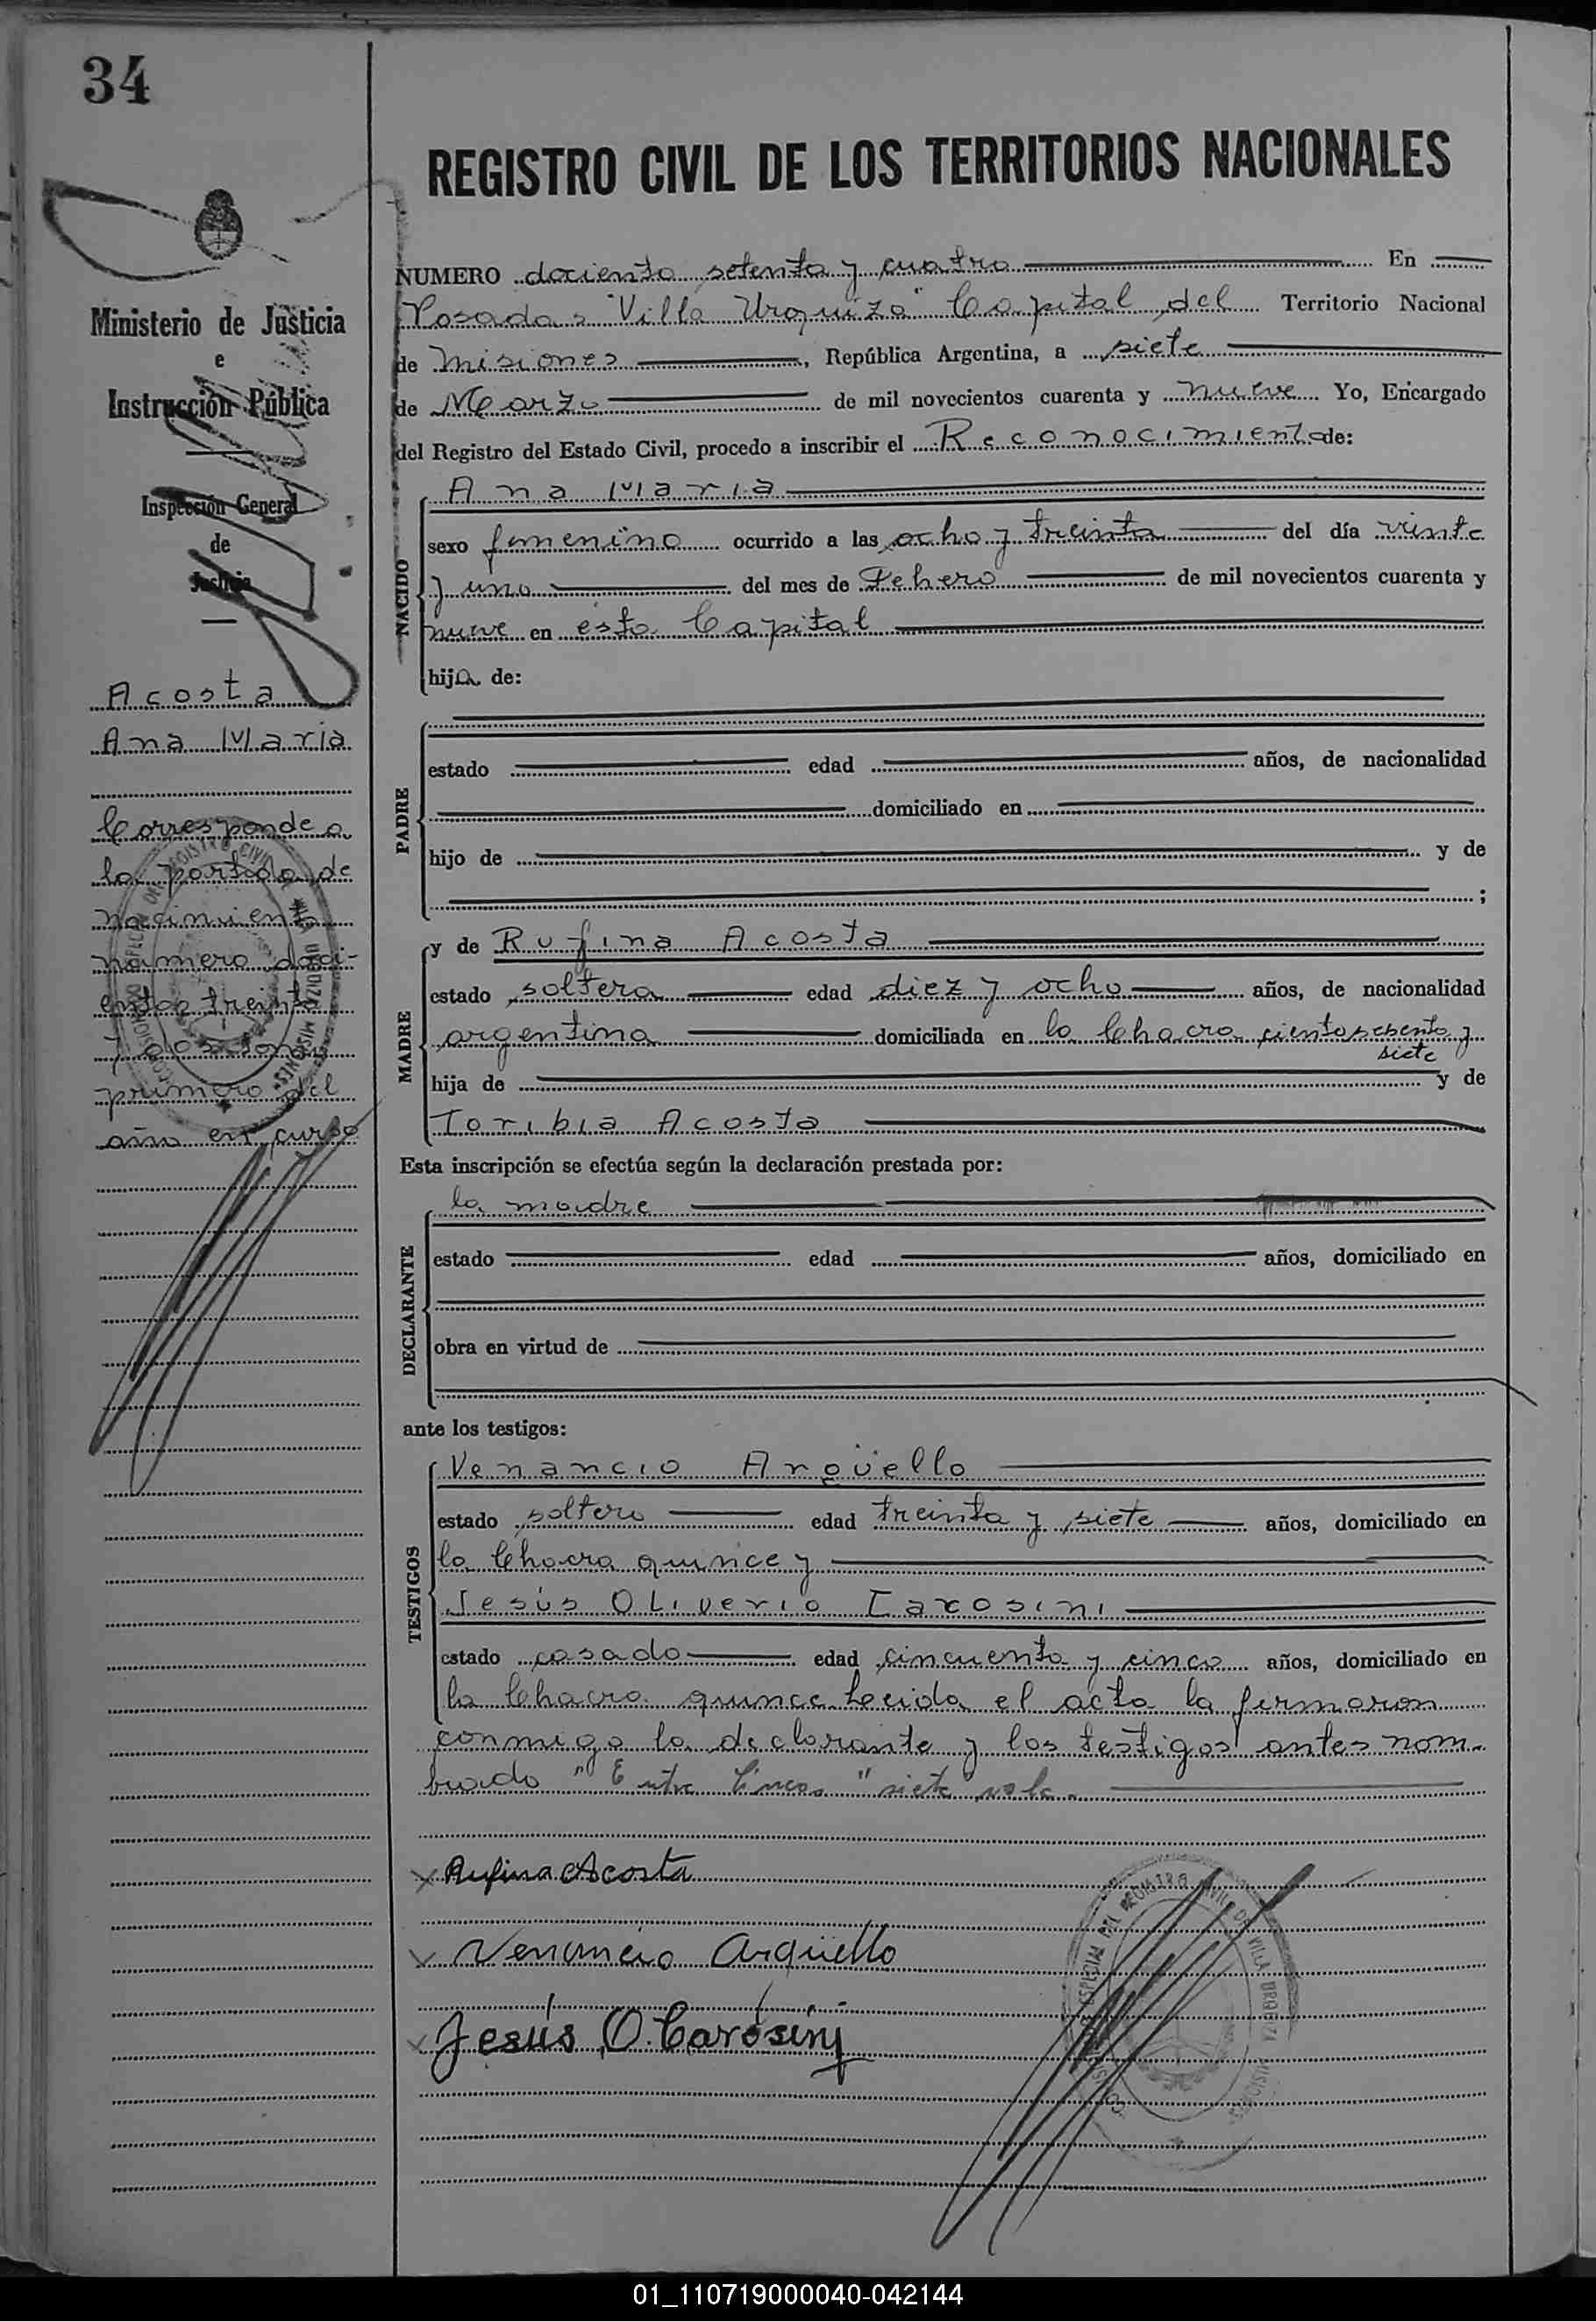 34
REGISTRO CIVIL DE LOS TERRITORIOS NACIONALES
Ministerio de Justicia
e
Instrucción Pública
Inspección General
de
Justicia
Acosta
Ana Maria
Corresponde a
la partida de
nacimiento
número doci-
entos treinta
y dos tomo
primero del
año en curso
NUMERO dociento setenta y cuatro En
Posadas "Villa Urquiza" Capital del Territorio Nacional
de Misiones, República Argentina, a siete
de Marzo de mil novecientos cuarenta y nueve Yo, Encargado
del Registro del Estado Civil, procedo a inscribir el Reconocimiento de:
NACIDO
Ana Maria
sexo femenino ocurrido a las ocho y treinta del día veinte
y uno del mes de Febero de mil novecientos cuarenta y
nueve en esta Capital
hija de:
PADRE
estado edad años, de nacionalidad
domiciliado en
hijo de y de
;
MADRE
y de Rufina Acosta
estado soltera edad diez y ocho años, de nacionalidad
argentina domiciliada en la Chacra ciento sesenta y
siete
hija de y de
Toribia Acosta
Esta inscripción se efectúa según la declaración prestada por:
DECLARANTE
la madre
estado edad años, domiciliado en
obra en virtud de
ante los testigos:
TESTIGOS
Venancio Argüello
estado soltero edad treinta y siete años, domiciliado en
la Chacra quince y
Jesús Oliverio Carosini
estado casado edad cincuenta y cinco años, domiciliado en
la Chacra quince Leeida el acta la firmaron
conmigo la declarante y los testigos antes nom-
brado "Entre líneas "siete" vale.
Rufina Acosta
Venancio Argüello
Jesús O. Carósini
01_110719000040-042144